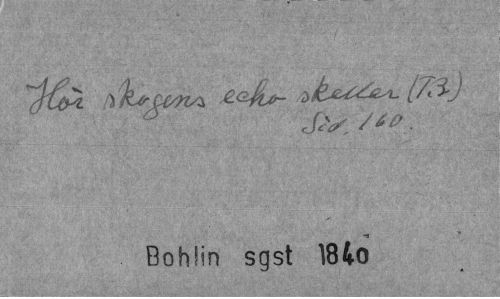 Hör skogens echo skeller (T.B.)
Sid. 160.
Bohlin sgst 1840